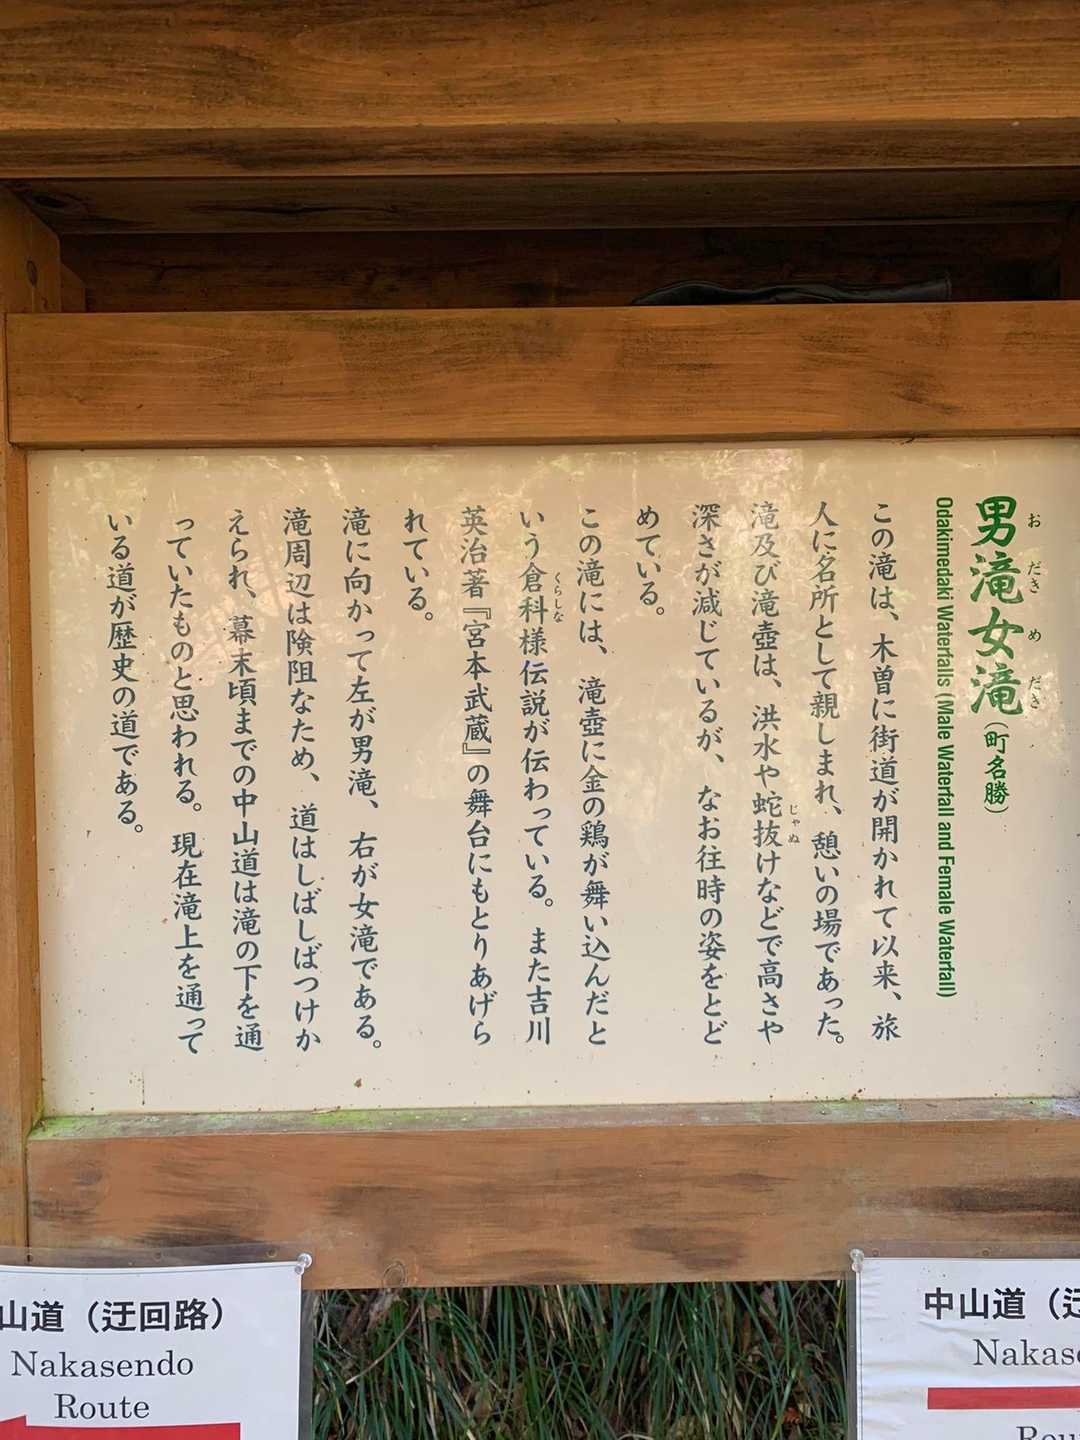 男滝女滝（町名勝）
おだきめだき
Odakimedaki Waterfalls (Male Waterfall and Female Waterfall)
この滝は、木曽に街道が開かれて以来、旅
人に名所として親しまれ、憩いの場であった。
滝及び滝壺は、洪水や蛇抜けなどで高さや
じゃぬ
深さが減じているが、なお往時の姿をとど
めている。
この滝には、滝壺に金の鶏が舞い込んだと
いう倉科様伝説が伝わっている。また吉川
くらしな
英治著『宮本武蔵』の舞台にもとりあげら
れている。
滝に向かって左が男滝、右が女滝である。
滝周辺は険阻なため、道はしばしばつけか
えられ、幕末頃までの中山道は滝の下を通
っていたものと思われる。現在滝上を通って
いる道が歴史の道である。
山道（迂回路）
Nakasendo
Route
中山道（迂
Nakase
Rou